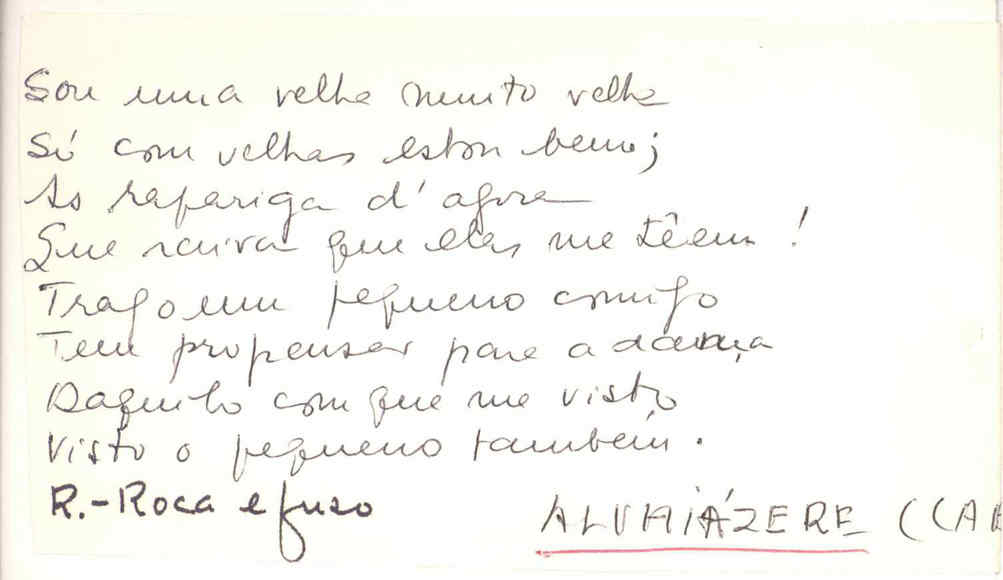 Sou uma velha muito velha
Só com velhas estou bem;
As rapariga d'agora
Que raiva que elas me têem!
Trago um pequeno comigo
Tem propensar para a dança
Daquilo com que me visto
Visto o pequeno também.
R.-Roca e fuso
ALVAIÁZERE (CAB